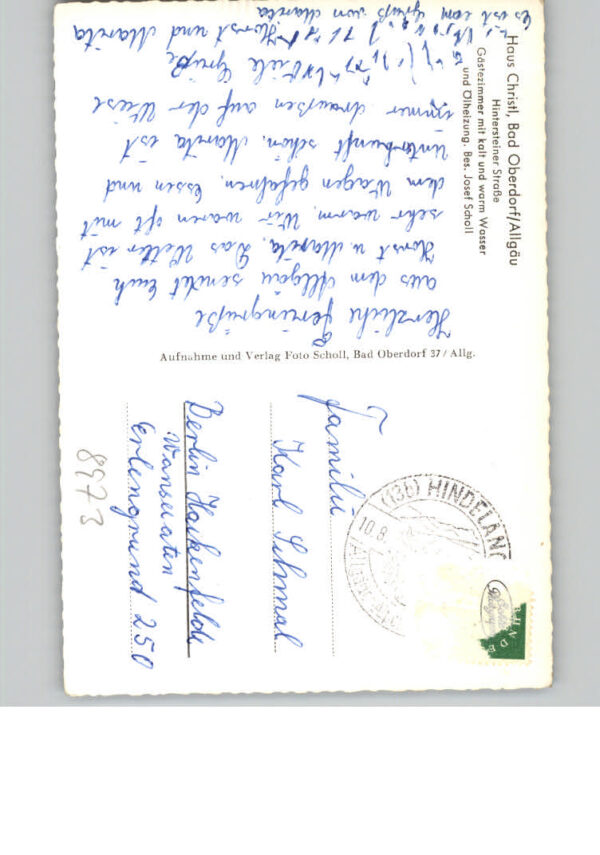 Haus Christl, Bad Oberdorf/Allgäu
Hintersteiner Straße
Gästezimmer mit kalt und warm Wasser
und Ölheizung. Bes. Josef Scholl
Herzliche Feriengrüße
aus dem Allgäu sendet Euch
Horst u Marita. Das Wetter ist
sehr warm. Wir waren oft mit
dem Wagen gefahren. Essen und
Unterkunft schön. Marita ist
immer draußen auf der Wiese
Viele Grüße
Horst und Marita
Es ist ein Gruß von Marita
Aufnahme und Verlag Foto Scholl, Bad Oberdorf 37 / Allg.
Familie
Karl Schmal
Berlin Hakenfelde
Erlengrund 250
(13b) HINDELANG
10.8.
8973